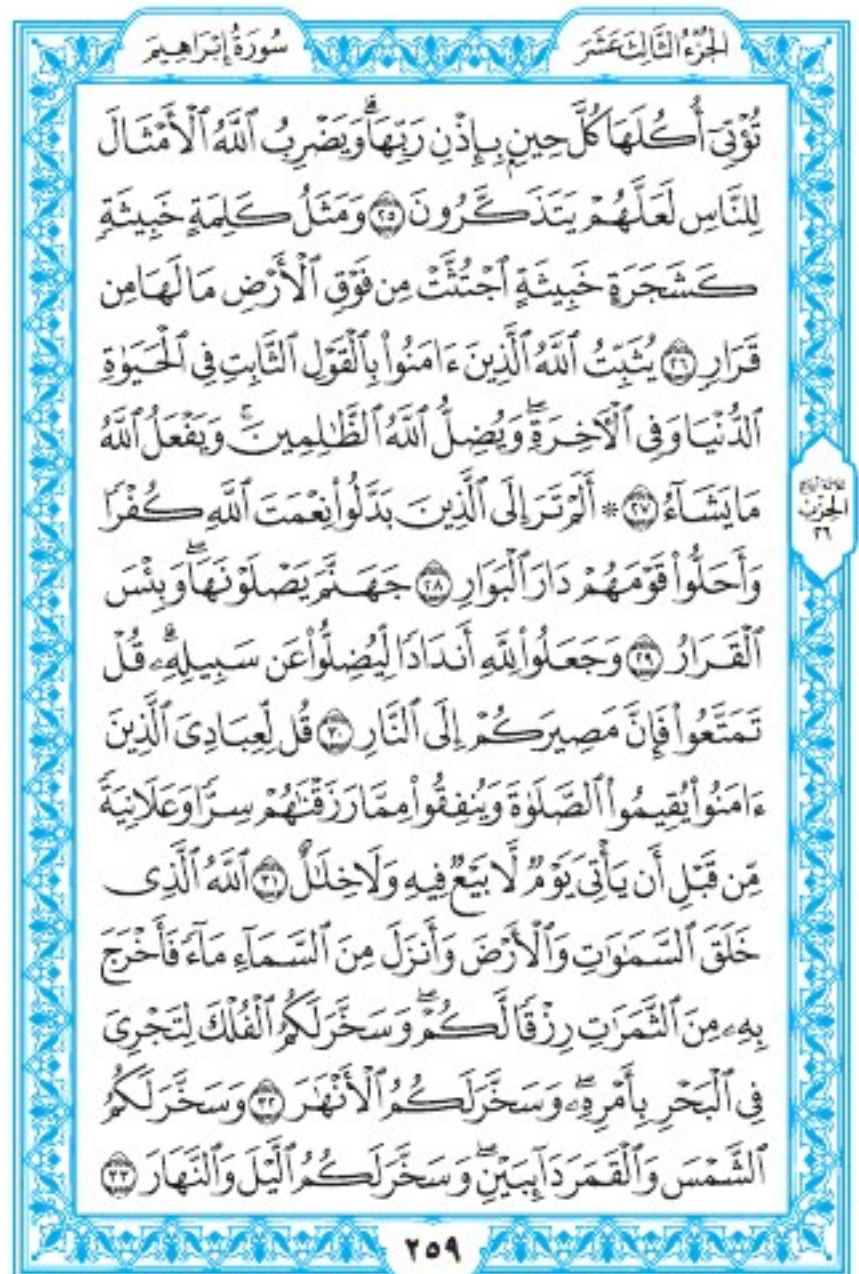 الجُزْءُ الثَّالِثَ عَشَرَ
سُورَةُ إِبْرَاهِيمَ
تُؤْتِىٓ أُكُلَهَا كُلَّ حِينٍۭ بِإِذْنِ رَبِّهَاۗ وَيَضْرِبُ ٱللَّهُ ٱلْأَمْثَالَ
لِلنَّاسِ لَعَلَّهُمْ يَتَذَكَّرُونَ ٢٥ وَمَثَلُ كَلِمَةٍ خَبِيثَةٍ
كَشَجَرَةٍ خَبِيثَةٍ ٱجْتُثَّتْ مِن فَوْقِ ٱلْأَرْضِ مَا لَهَا مِن
قَرَارٍ ٢٦ يُثَبِّتُ ٱللَّهُ ٱلَّذِينَ ءَامَنُوا۟ بِٱلْقَوْلِ ٱلثَّابِتِ فِى ٱلْحَيَوٰةِ
ٱلدُّنْيَا وَفِى ٱلْءَاخِرَةِۖ وَيُضِلُّ ٱللَّهُ ٱلظَّٰلِمِينَۚ وَيَفْعَلُ ٱللَّهُ
مَا يَشَآءُ ٢٧ * أَلَمْ تَرَ إِلَى ٱلَّذِينَ بَدَّلُوا۟ نِعْمَتَ ٱللَّهِ كُفْرًا
وَأَحَلُّوا۟ قَوْمَهُمْ دَارَ ٱلْبَوَارِ ٢٨ جَهَنَّمَ يَصْلَوْنَهَاۖ وَبِئْسَ
ٱلْقَرَارُ ٢٩ وَجَعَلُوا۟ لِلَّهِ أَندَادًا لِّيُضِلُّوا۟ عَن سَبِيلِهِۦۗ قُلْ
تَمَتَّعُوا۟ فَإِنَّ مَصِيرَكُمْ إِلَى ٱلنَّارِ ٣٠ قُل لِّعِبَادِىَ ٱلَّذِينَ
ءَامَنُوا۟ يُقِيمُوا۟ ٱلصَّلَوٰةَ وَيُنفِقُوا۟ مِمَّا رَزَقْنَٰهُمْ سِرًّا وَعَلَانِيَةً
مِّن قَبْلِ أَن يَأْتِىَ يَوْمٌ لَّا بَيْعٌ فِيهِ وَلَا خِلَٰلٌ ٣١ ٱللَّهُ ٱلَّذِى
خَلَقَ ٱلسَّمَٰوَٰتِ وَٱلْأَرْضَ وَأَنزَلَ مِنَ ٱلسَّمَآءِ مَآءً فَأَخْرَجَ
بِهِۦ مِنَ ٱلثَّمَرَٰتِ رِزْقًا لَّكُمْۖ وَسَخَّرَ لَكُمُ ٱلْفُلْكَ لِتَجْرِىَ
فِى ٱلْبَحْرِ بِأَمْرِهِۦۖ وَسَخَّرَ لَكُمُ ٱلْأَنْهَٰرَ ٣٢ وَسَخَّرَ لَكُمُ
ٱلشَّمْسَ وَٱلْقَمَرَ دَآئِبَيْنِۖ وَسَخَّرَ لَكُمُ ٱلَّيْلَ وَٱلنَّهَارَ ٣٣
ثلاثة أرباع
الحِزْب
٢٦
٢٥٩